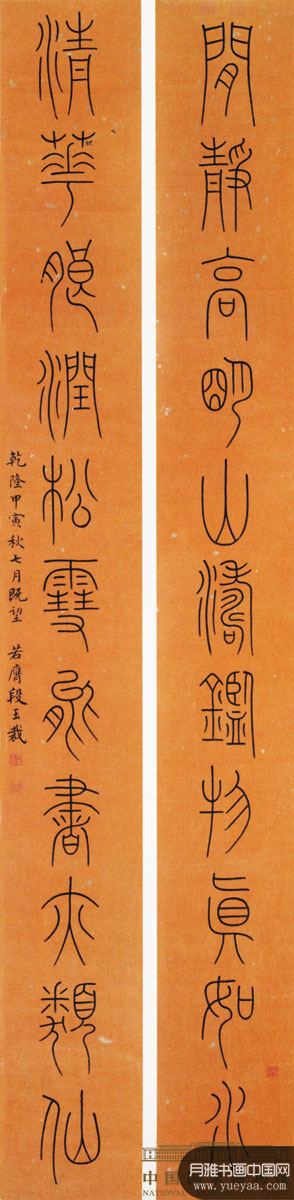 閒靜高朙山濤鑑物眞如水
清華朖潤松雪能書亦類仙
乾隆甲寅秋七月既望 若膺段玉裁
中国
NATIONAL
月雅书画中国网
www.yueyaa.com